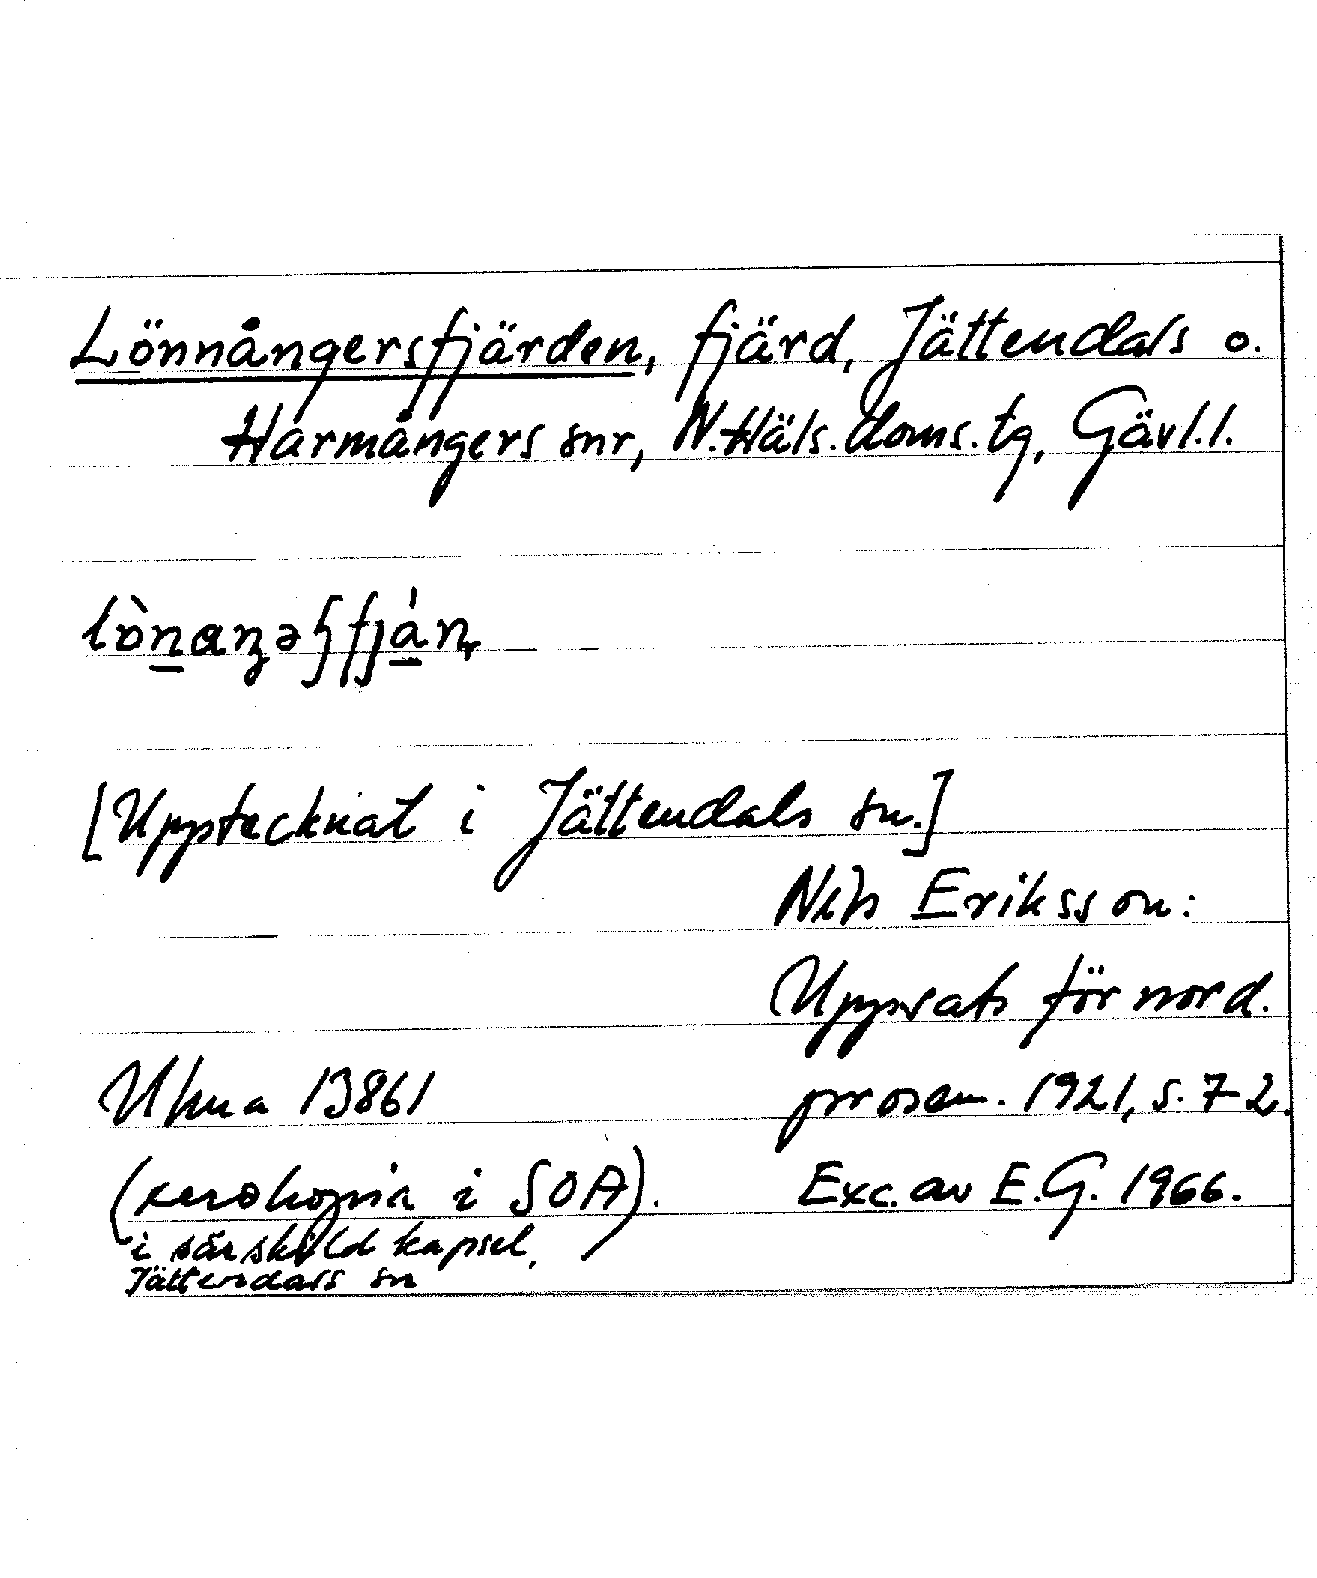 Lönnångersfjärden, fjärd, Jättendals o.
Harmångers snr, N.Häls.doms.tg, Gävl.l.
[Upptecknat i Jättendals sn.]
Nils Eriksson:
Uppsats för nord.
Uhma 13861
prosem. 1921, s. 72.
(xerokopia i SOA).
Exc. av E.G. 1966.
i särskild kapsel,
Jättendals sn